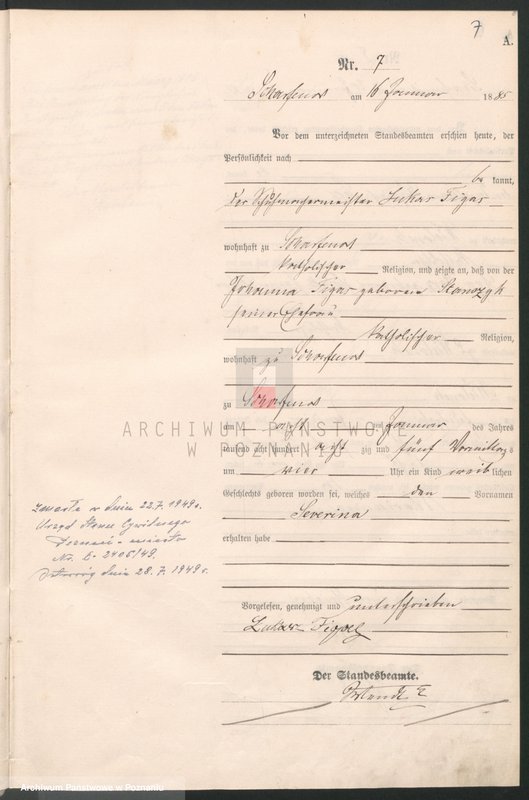 7
A.
Nr. 7
Scharfenort am 16 Januar 1885
Vor dem unterzeichneten Standesbeamten erschien heute, der
Persönlichkeit nach
be kannt,
der Schuhmachermeister Lukas Figas
wohnhaft zu Scharfenort
katholischer Religion, und zeigte an, daß von der
Johanna Figas geborene
seiner Ehefrau
katholischer Religion,
wohnhaft zu Scharfenort
zu Scharfenort
am acht Januar des Jahres
tausend acht hundert acht zig und fünf Vormittags
um vier Uhr ein Kind weiblichen
Geschlechts geboren worden sei, welches den Vornamen
Severina
erhalten habe
zmarła w dniu 22.7.1949 r.
Urząd Stanu Cywilnego
Poznań - miasto
Nr. 2406/49.
dnia 28.7.1949 r.
Vorgelesen, genehmigt und unterschrieben
Der Standesbeamte.
ARCHIWUM PAŃSTWOWE
W POZNANIU
Archiwum Państwowe w Poznaniu